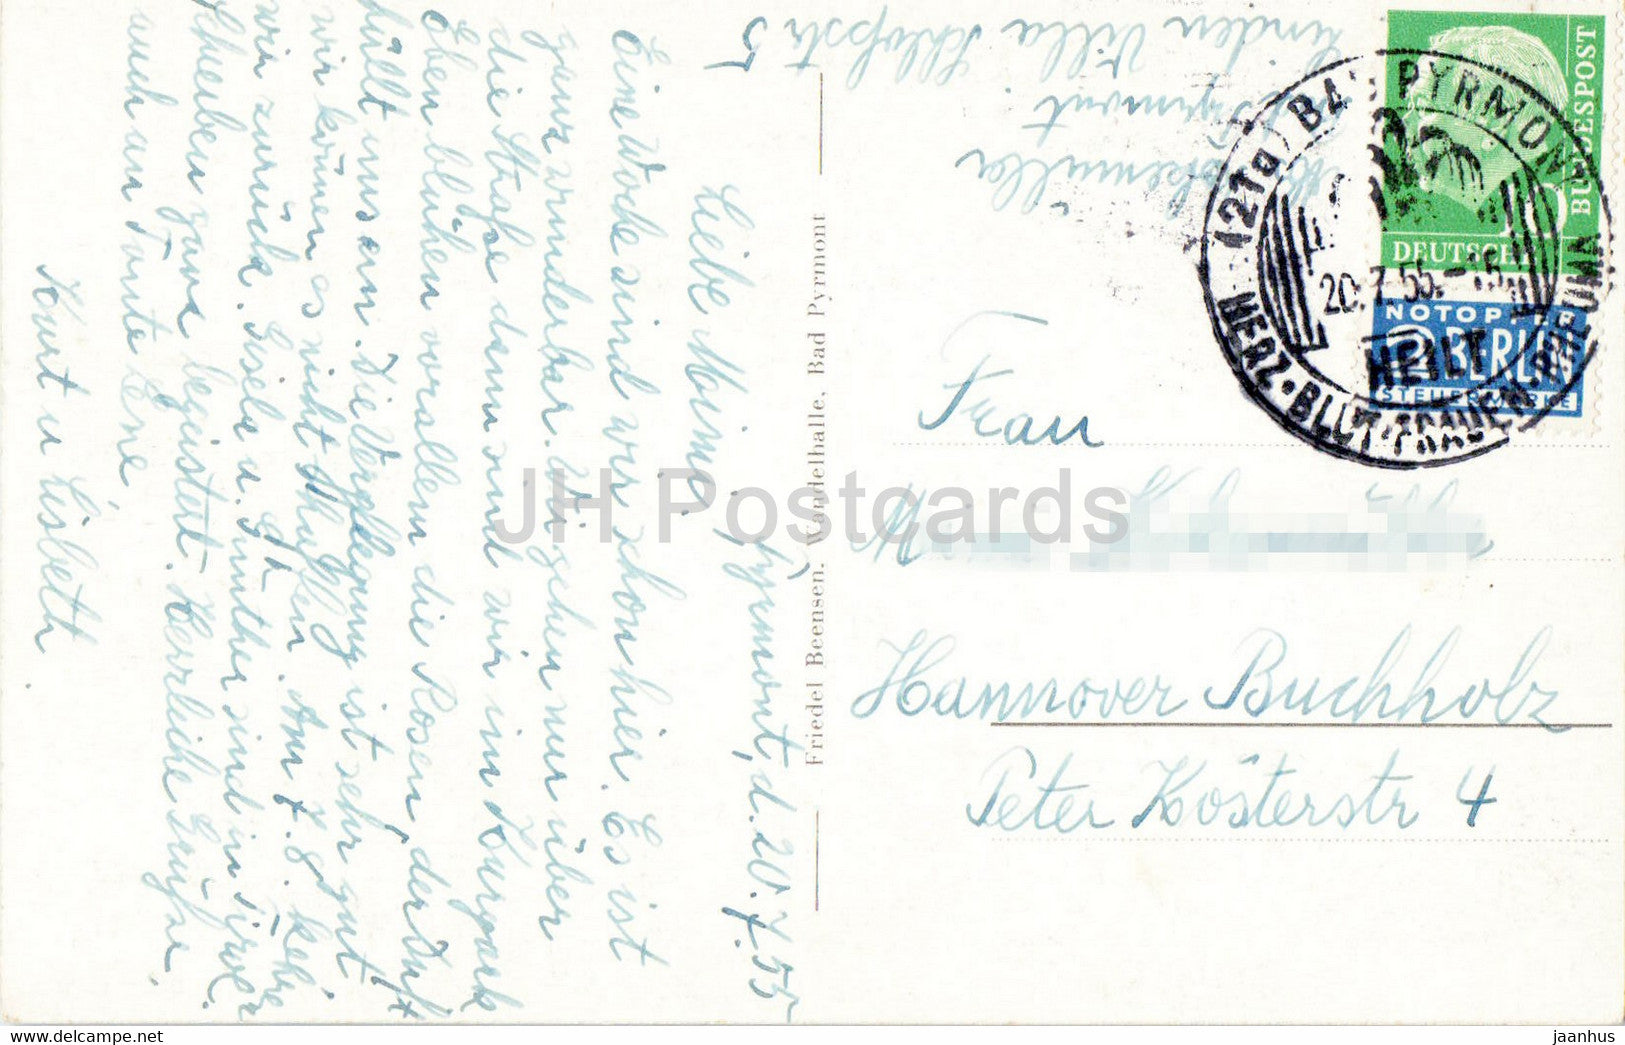 Pyrmont, d. 20.7.55
Liebe Moima.
Eine Woche sind wir schon hier. Es ist
ganz wunderbar. Wir gehen nur über
die Straße dann sind wir im Kurpark
Eben blühen vor allem die Rosen, der Duft
hüllt uns ein. Die Verpflegung ist sehr gut
wir können es nicht schaffen. Am 7.8. kehren
wir zurück. Gisela u. Günther sind in Tirol
schreiben ganz begeistert. Herzliche Grüße
auch an Tante Erne,
Kurt u Lisbeth
Friedel Beensen. Wandelhalle, Bad Pyrmont
Pyrmont
Linden Villa Schloßstr 5
(21a) BAD PYRMONT
20.7.55.-15
HEILT
HERZ·BLUT·FRAUEN·RHEUMA
DEUTSCHE
BUNDESPOST
10
NOTOPFER
2 BERLIN
STEUERMARKE
Frau
Hannover Buchholz
Peter Kösterstr 4
JH Postcards
www.delcampe.net
jaanhus